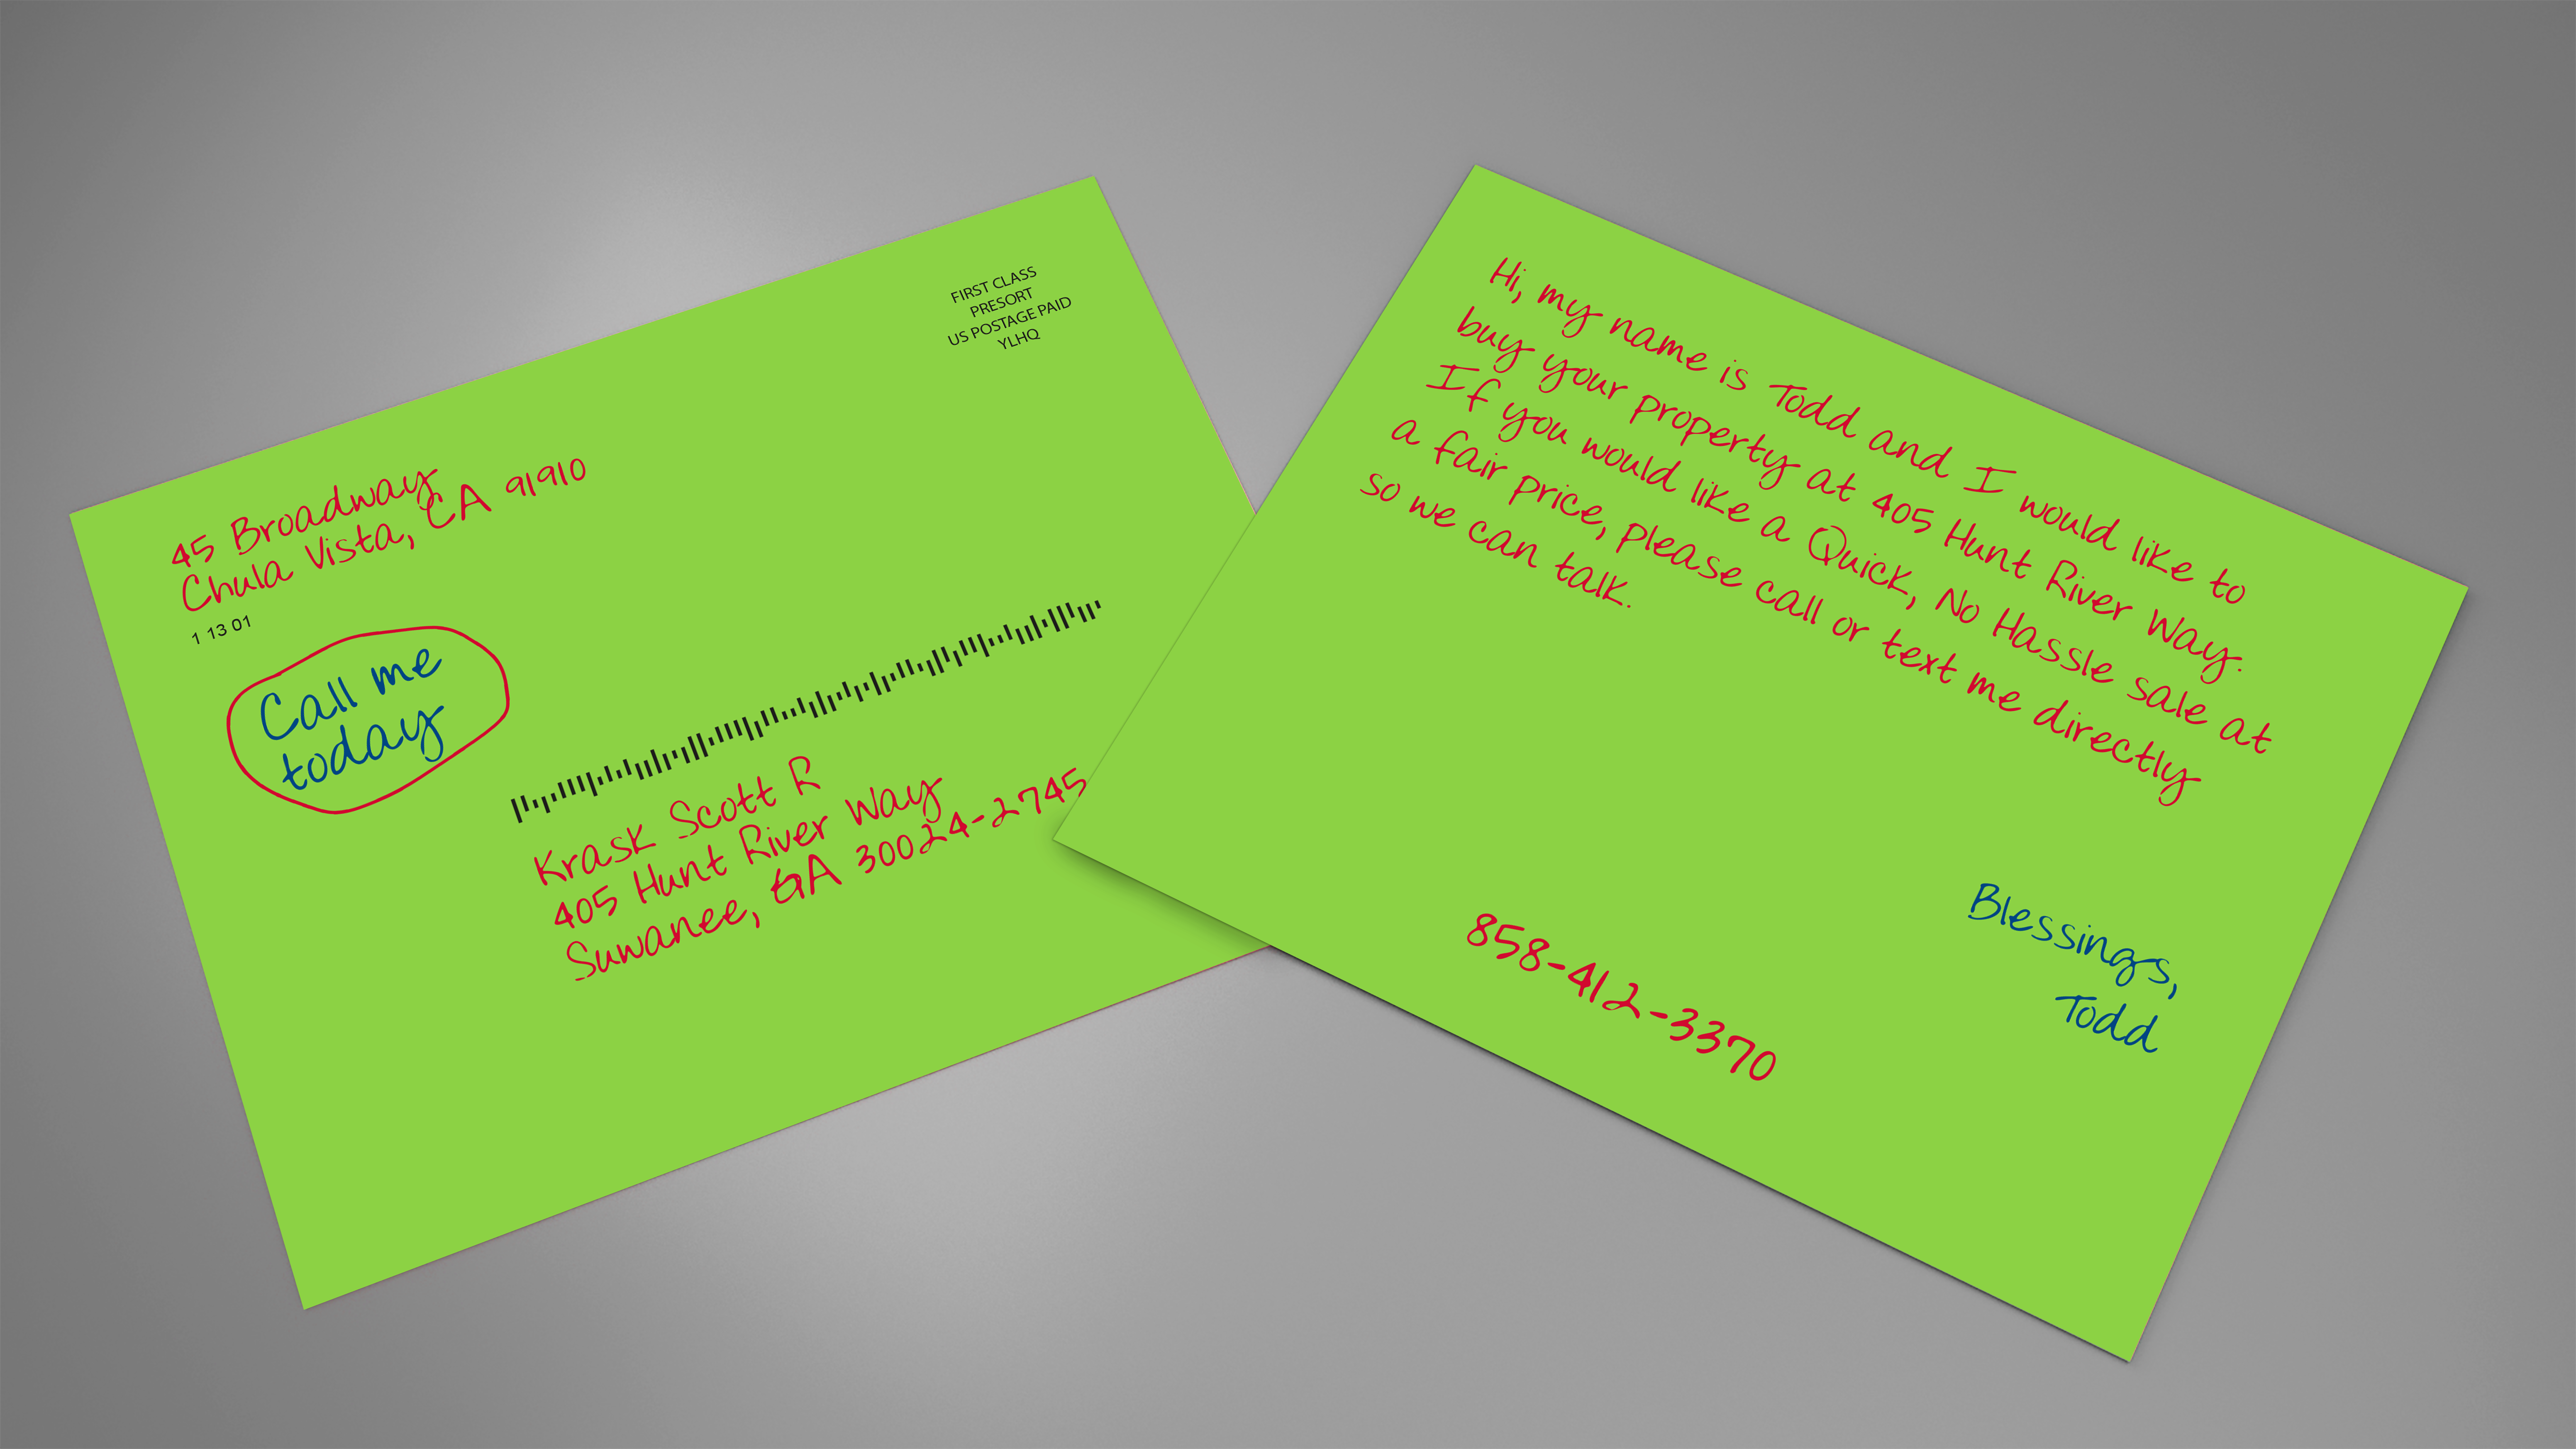 FIRST CLASS
PRESORT
US POSTAGE PAID
YLHQ
45 Broadway
Chula Vista, CA 91910
1 13 01
Call me
today
Krask Scott R
405 Hunt River Way
Suwanee, GA 30024-2745
Hi, my name is Todd and I would like to
buy your property at 405 Hunt River Way.
If you would like a Quick, No Hassle sale at
a fair price, please call or text me directly
so we can talk.
Blessings,
Todd
858-412-3370